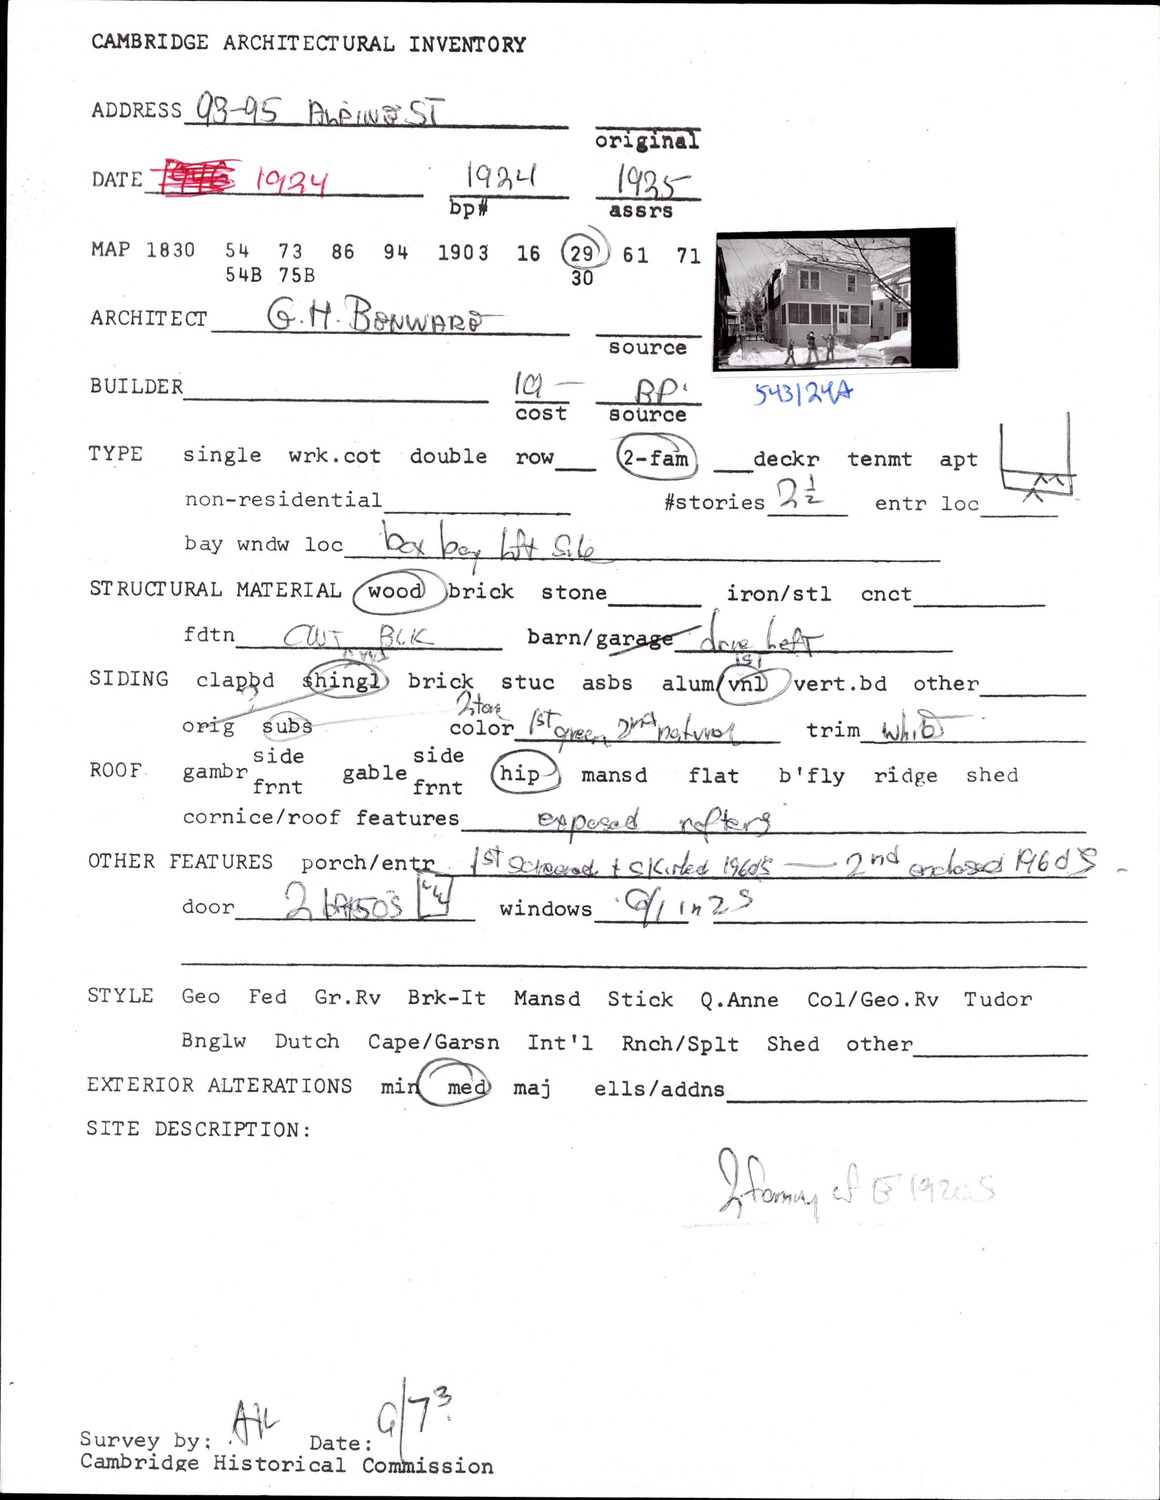 CAMBRIDGE ARCHITECTURAL INVENTORY
ADDRESS 93-95 ALPINE ST
original
DATE 1924 1924 1925
bp# assrs
MAP 1830 54 73 86 94 1903 16 29 61 71
54B 75B 30
ARCHITECT G.H. BENWARE
source
BUILDER 10 — BP
cost source
543/24A
TYPE single wrk.cot double row 2-fam deckr tenmt apt
non-residential #stories 2 1/2 entr loc
bay wndw loc box bay left side
STRUCTURAL MATERIAL wood brick stone iron/stl cnct
fdtn CMT BLK barn/garage drive left
2nd 1st
SIDING clapbd shingl brick stuc asbs alum/vnl vert.bd other
?
orig subs 2 tone color 1st green 2nd natural trim white
ROOF gambr side frnt gable side frnt hip mansd flat b'fly ridge shed
cornice/roof features exposed rafters
OTHER FEATURES porch/entr 1st screened + skirted 1960'S — 2nd enclosed 1960'S
door 2 windows 6/1 in 2S
STYLE Geo Fed Gr.Rv Brk-It Mansd Stick Q.Anne Col/Geo.Rv Tudor
Bnglw Dutch Cape/Garsn Int'l Rnch/Splt Shed other
EXTERIOR ALTERATIONS min med maj ells/addns
SITE DESCRIPTION:
2 family of 1920S
Survey by: Date:
Cambridge Historical Commission